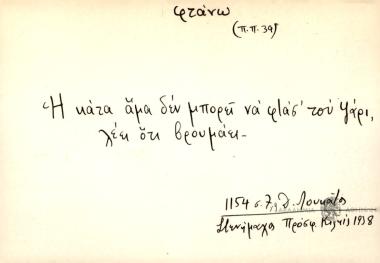 φτάνω
(π.π. 39)
Ἡ κάτα ἅμα δέν μπορεῖ νά φτάσ' τοῦ ψάρι,
λέει ὅτι βρουμάει.
1154 σ. 7, Δ. Λουκάτος
Στενήμαχος Πρόσφ. Κιλκίς 1938